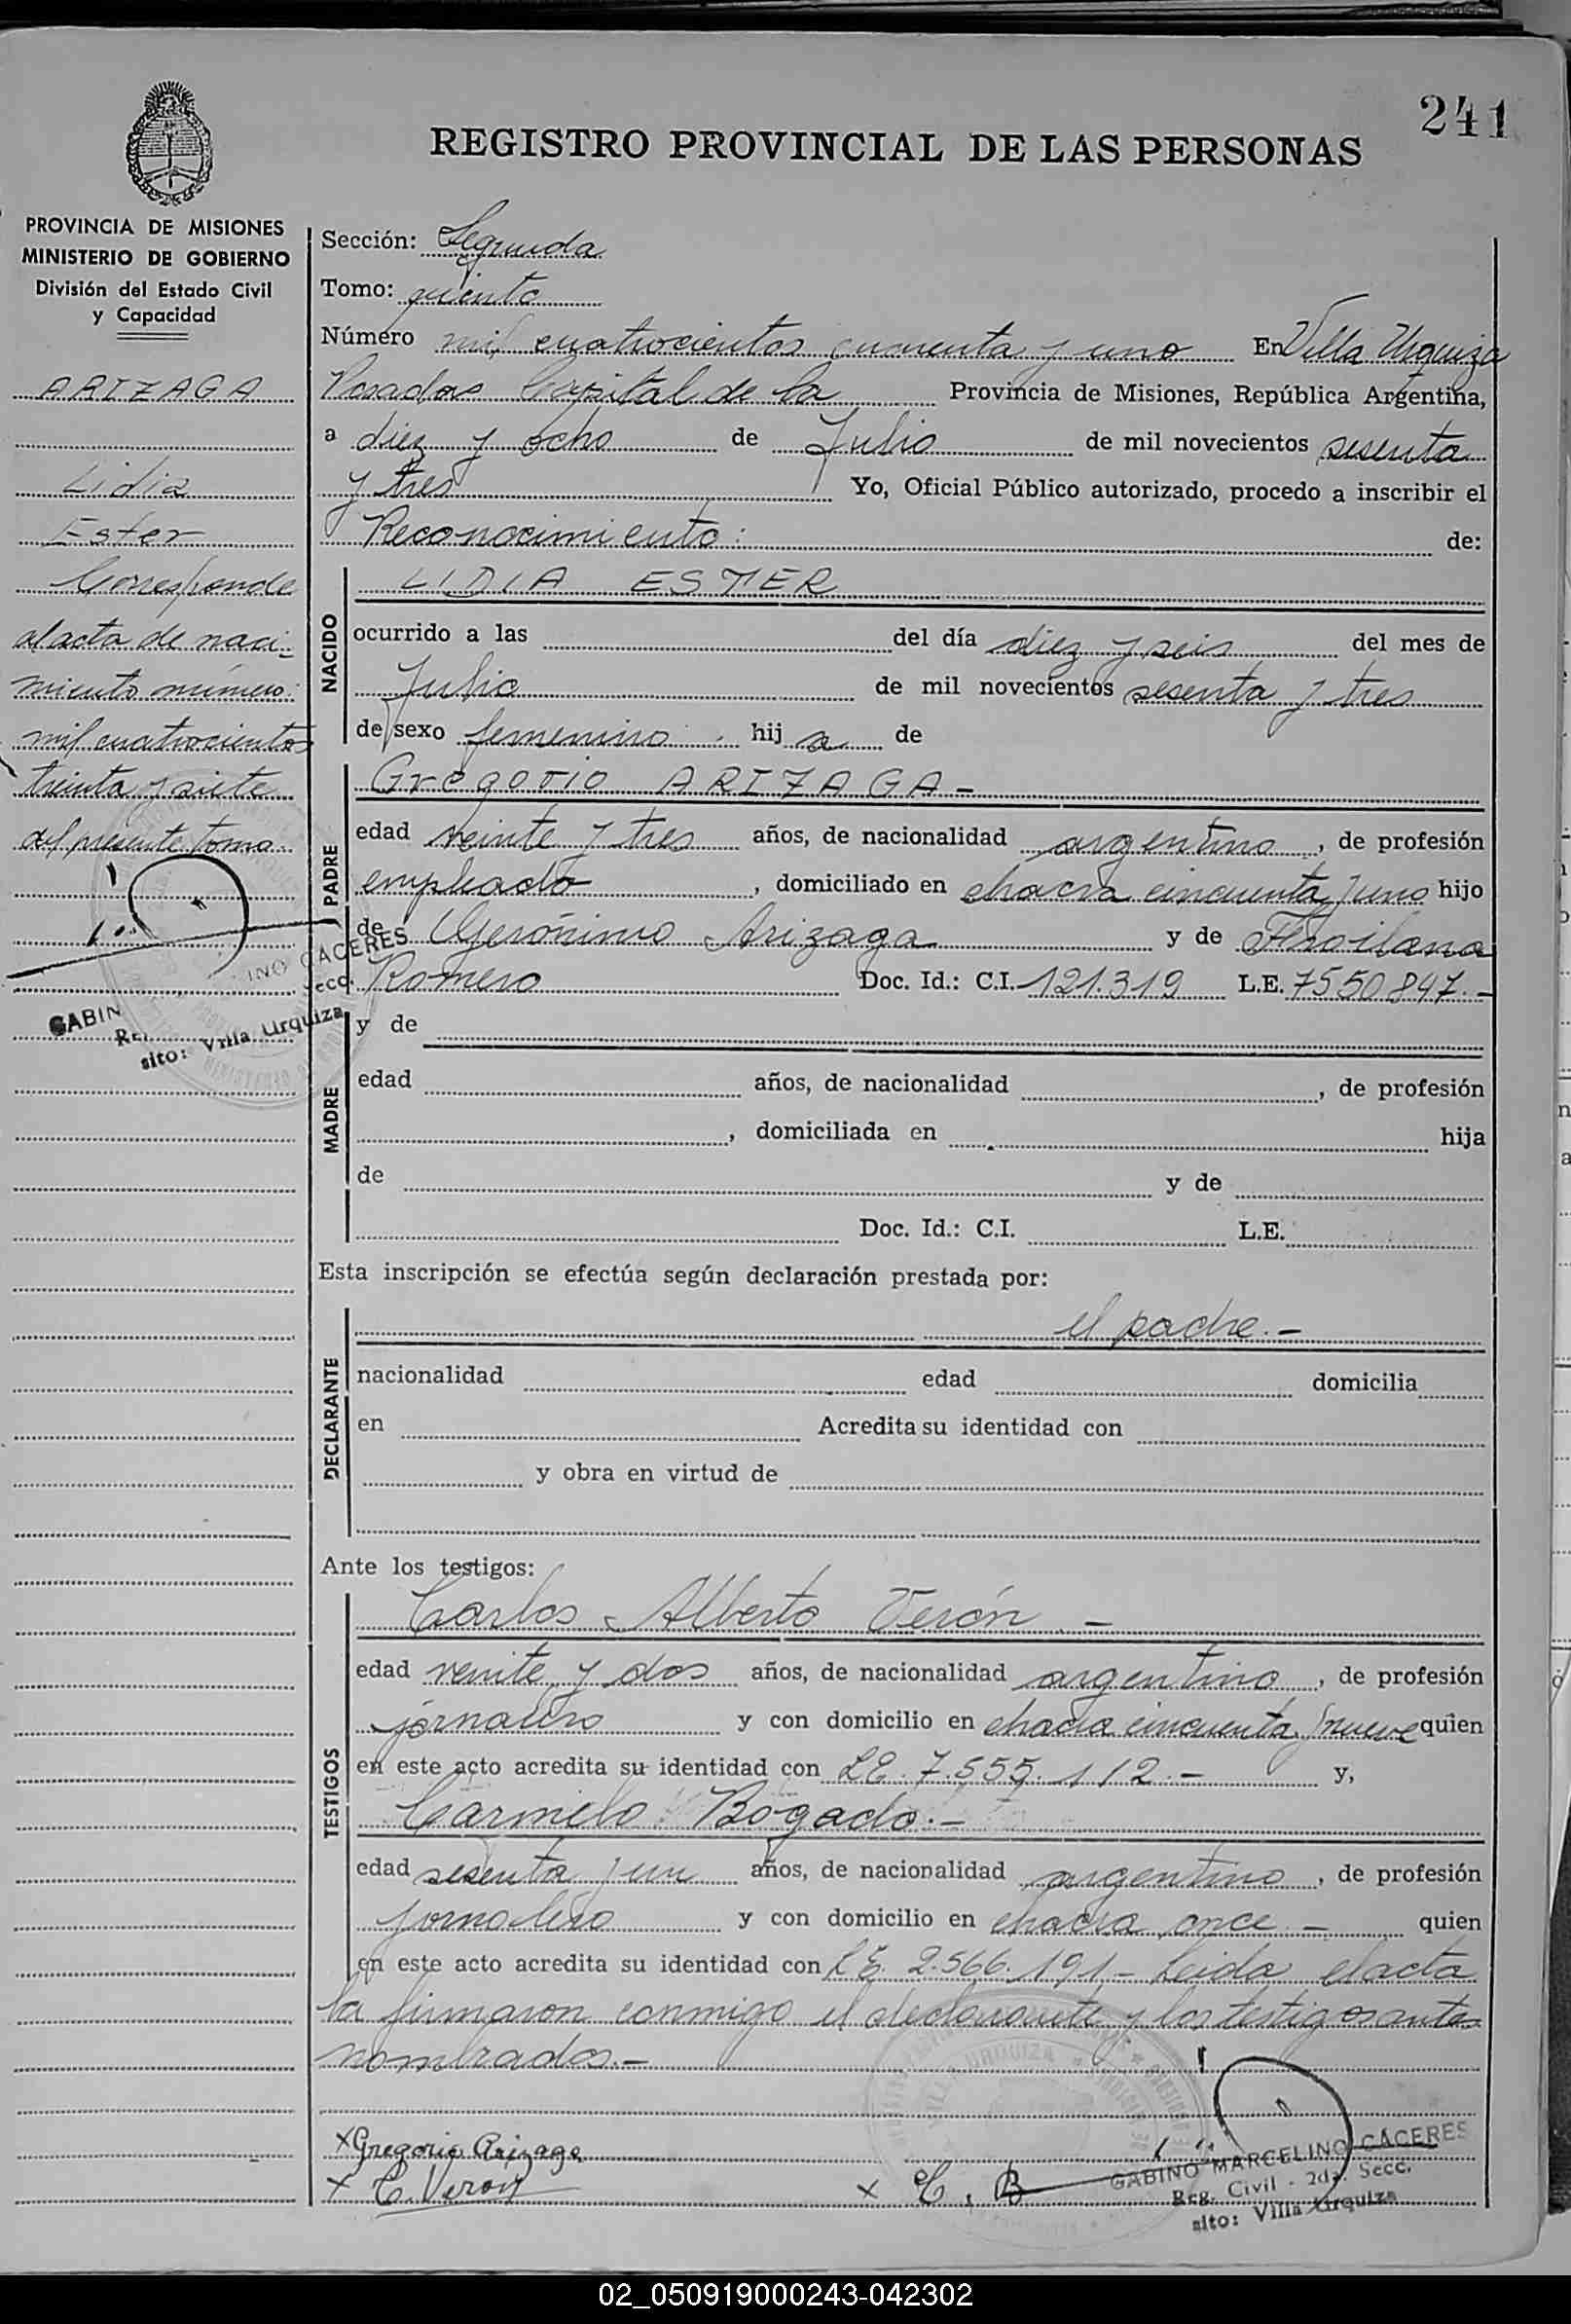 241
REGISTRO PROVINCIAL DE LAS PERSONAS
PROVINCIA DE MISIONES
MINISTERIO DE GOBIERNO
División del Estado Civil
y Capacidad
ARIZAGA
Lidia
Ester
Corresponde
al acta de naci-
miento número
mil cuatrocientos
treinta y siete
del presente tomo.
CACERES
GABIN
Secc.
sito: Villa Urquiza
Sección: Segunda
Tomo: quinto
Número mil cuatrocientos cuarenta y uno En Villa Urquiza
Posadas Capital de la Provincia de Misiones, República Argentina,
a diez y ocho de Julio de mil novecientos sesenta
y tres Yo, Oficial Público autorizado, procedo a inscribir el
Reconocimiento: de:
NACIDO
LIDIA ESTER
ocurrido a las del día diez y seis del mes de
Julio de mil novecientos sesenta y tres
de sexo femenino hij a de
PADRE
Gregorio ARIZAGA -
edad veinte y tres años, de nacionalidad argentino, de profesión
empleado, domiciliado en chacra cincuenta y uno hijo
de Gerónimo Arizaga y de Froilana
Romero Doc. Id.: C.I. 121.319 L.E. 7550847.-
MADRE
y de
edad años, de nacionalidad , de profesión
, domiciliada en hija
de y de
Doc. Id.: C.I. L.E.
Esta inscripción se efectúa según declaración prestada por:
DECLARANTE
el padre.-
nacionalidad edad domicilia
en Acredita su identidad con
y obra en virtud de
Ante los testigos:
TESTIGOS
Carlos Alberto Verón -
edad veinte y dos años, de nacionalidad argentino, de profesión
jornalero y con domicilio en chacra cincuenta y nueve quien
en este acto acredita su identidad con L.E. 7.555.112.- y,
Carmelo Bogado.-
edad sesenta y un años, de nacionalidad argentino, de profesión
jornalero y con domicilio en chacra once - quien
en este acto acredita su identidad con L.E. 2.566.191.- Leida el acta
la firmaron conmigo el declarante y los testigos ante
nombrados.-
x Gregorio Arizaga
x C. Veron
x C. B
GABINO MARCELINO CACERES
Reg. Civil - 2da. Secc.
sito: Villa Urquiza
02_050919000243-042302